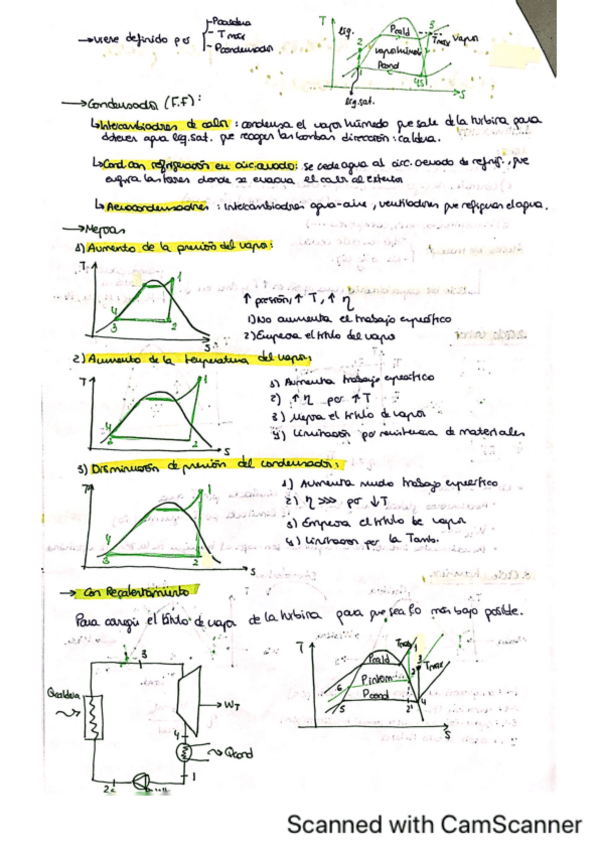 → viene definido por { - Pcaldera
- Tmax
- Pcondensador
T liq. Pcald 5 Tmax vapor
2 vapor húmedo
Pcond
1 4s s
liq. sat.
→ Condensador (F.F):
↳ Intercambiadores de calor: condensa el vapor húmedo que sale de la turbina para
obtener agua liq. sat. que recogen las bombas dirección: caldera.
↳ Cond. con refrigeración en circ. cerrado: se cede agua al circ. cerrado de refrig., que
las torres donde se evacua el calor al exterior
↳ Aerocondensadores: intercambiadores agua-aire, ventiladores que refrigeran el agua.
→ Mejoras
1) Aumento de la presión del vapor:
T 1
4
3 2
S
↑ presión, ↑ T, ↑ η
1) No aumenta el trabajo específico
2) Empeora el título del vapor
2) Aumento de la temperatura del vapor:
T 1
4
2
S
1) Aumenta trabajo específico
2) ↑ η por ↑ T
3) Mejora el título de vapor
4) Limitación por resistencia de materiales
3) Disminución de presión del condensador:
T 1
4
3 2
S
1) Aumenta mucho trabajo específico
2) η >>> por ↓ T
3) Empeora el título de vapor
4) Limitación por la Tamb.
→ Con Recalentamiento
Para corregir el título de vapor de la turbina para que sea lo más bajo posible.
3
Qcaldera
WT
4
Qcond
1
T Tmax 1
Pcald 3 Tmax
6 Pinterm 2
Pcond
5 2' 4
S
Scanned with CamScanner